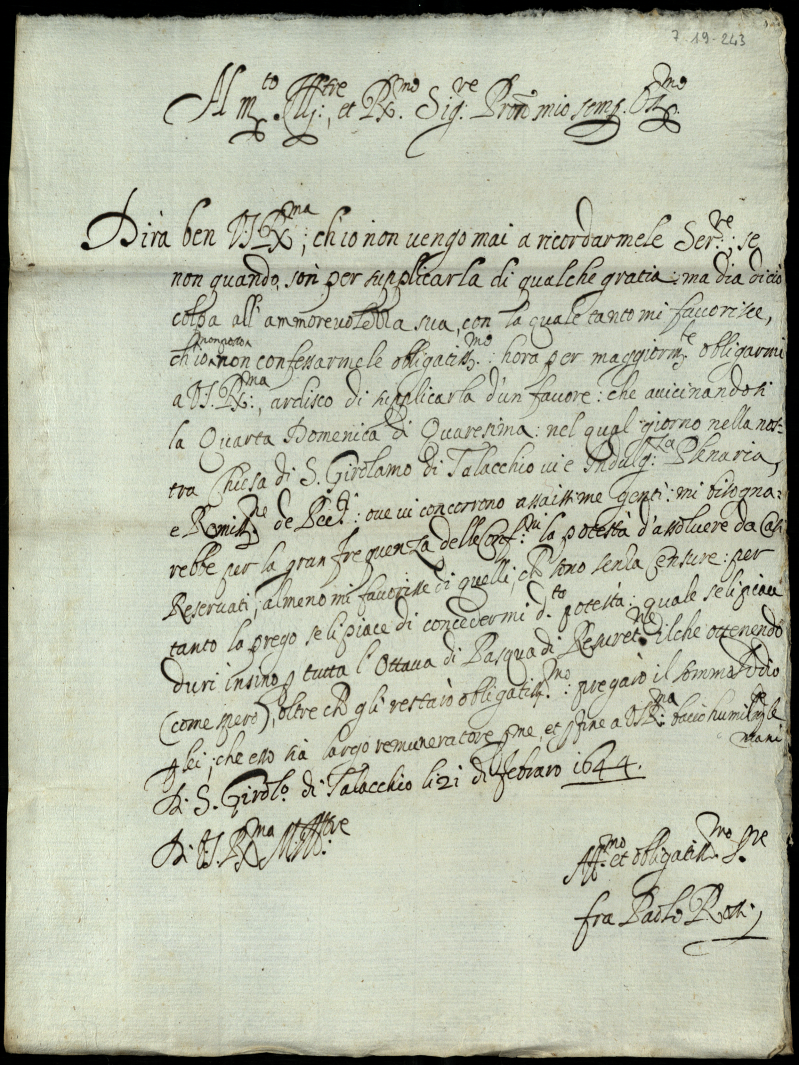 7-19-243
Al m.to Ill.tre, et R.mo Sig.re Pron mio semp. Oss.mo
Dirà ben V.S.R.ma, ch'io non vengo mai a ricordarmele Ser.re; se
non quando, son per supplicarla di qualche gratia: ma dia di ciò
colpa all'ammorevolezza sua, con la quale tanto mi favorisce,
ch'io non posso non confessarmele obligatiss.mo: hora per maggiorm.te obligarmi
a V.S.R.ma, ardisco di supplicarla d'un favore: che avicinandosi
la Quarta Domenica di Quaresima: nel qual giorno nella nos-
tra Chiesa di S. Girolamo di Talacchio vi è Indulg.za Plenaria,
e Remiss.ne de Pec.ti: ove vi concorrono assaissime genti: mi bisogna-
rebbe per la gran frequenza delle Conf.ni la potestà d'assolvere da Casi
Reservati, almeno mi favorisse di quelli, ch sono senza Censure: per
tanto la prego se li piace di concedermi d.to potestà: quale se li piace
duri insino p tutta l'Ottava di Pasqua di Resuret.ne ilche ottenendo
(come spero), oltre ch gli restarò obligatiss.mo: pregarò il sommo Iddio
p lei, che esso sia largo remuneratore p me, et p fine a V.S.R.ma bacio humilm.te le
mani
Di S. Girol.o di Talacchio li 21 di febraro 1644.
Di V.S.R.ma M. Ill.tre
Aff.mo et obligatiss.mo S.re
fra Paolo Rossi